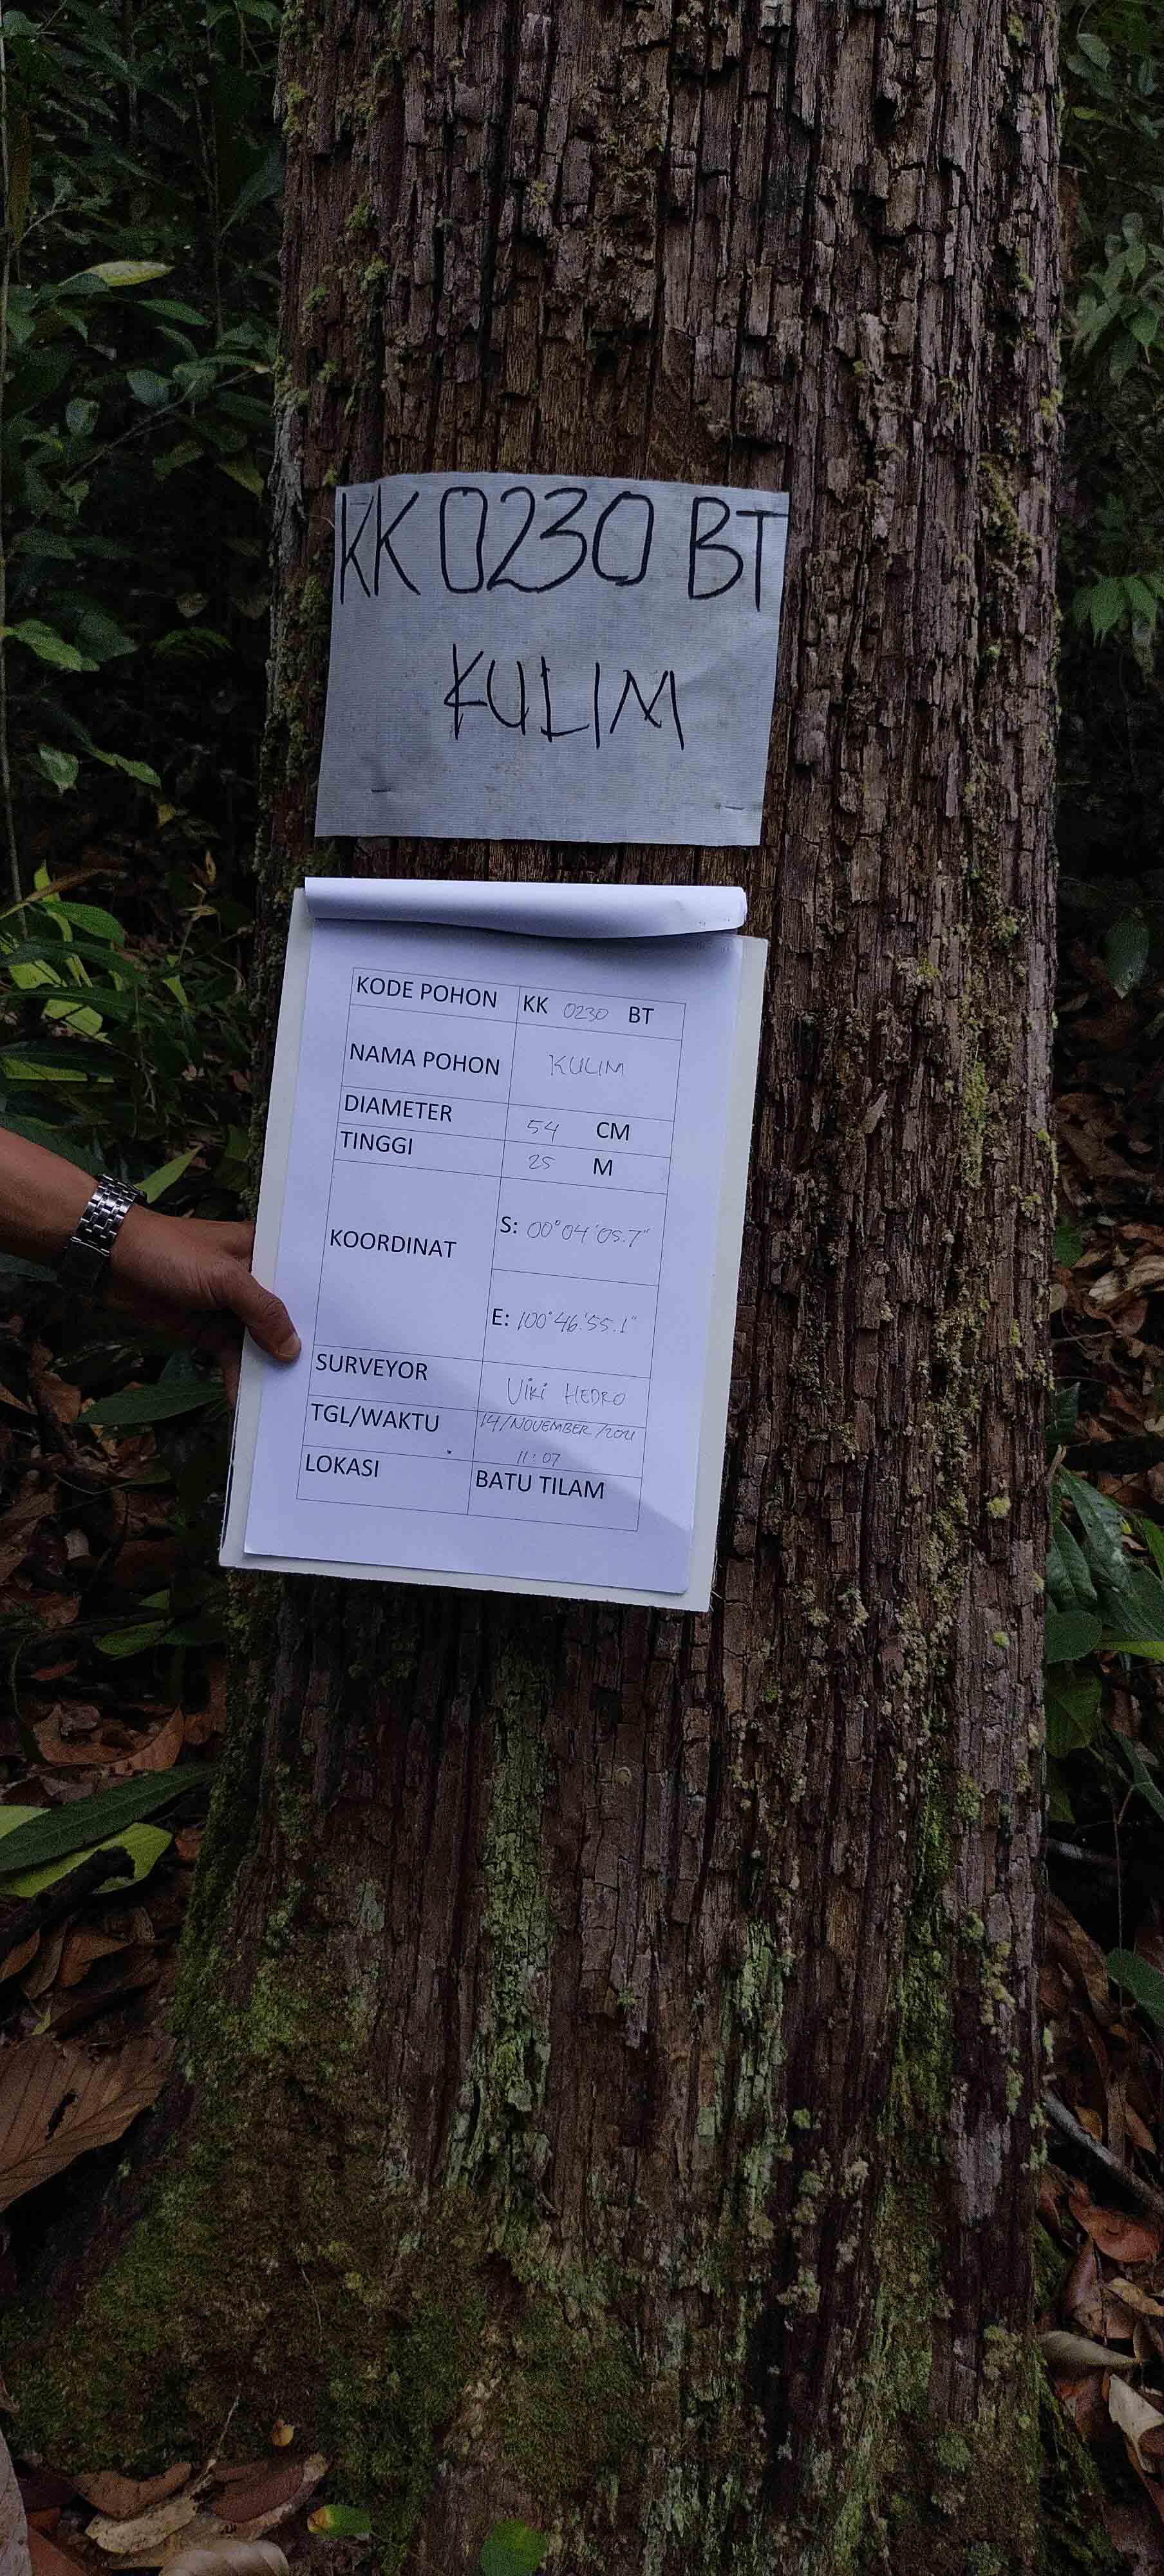 KK 0230 BT
KULIM
KODE POHON KK 0230 BT
NAMA POHON KULIM
DIAMETER 54 CM
TINGGI 25 M
KOORDINAT
S: 00°04'05.7"
E: 100°46'55.1"
SURVEYOR VIKI HEDRO
TGL/WAKTU 14/NOVEMBER/2021
11:07
LOKASI BATU TILAM